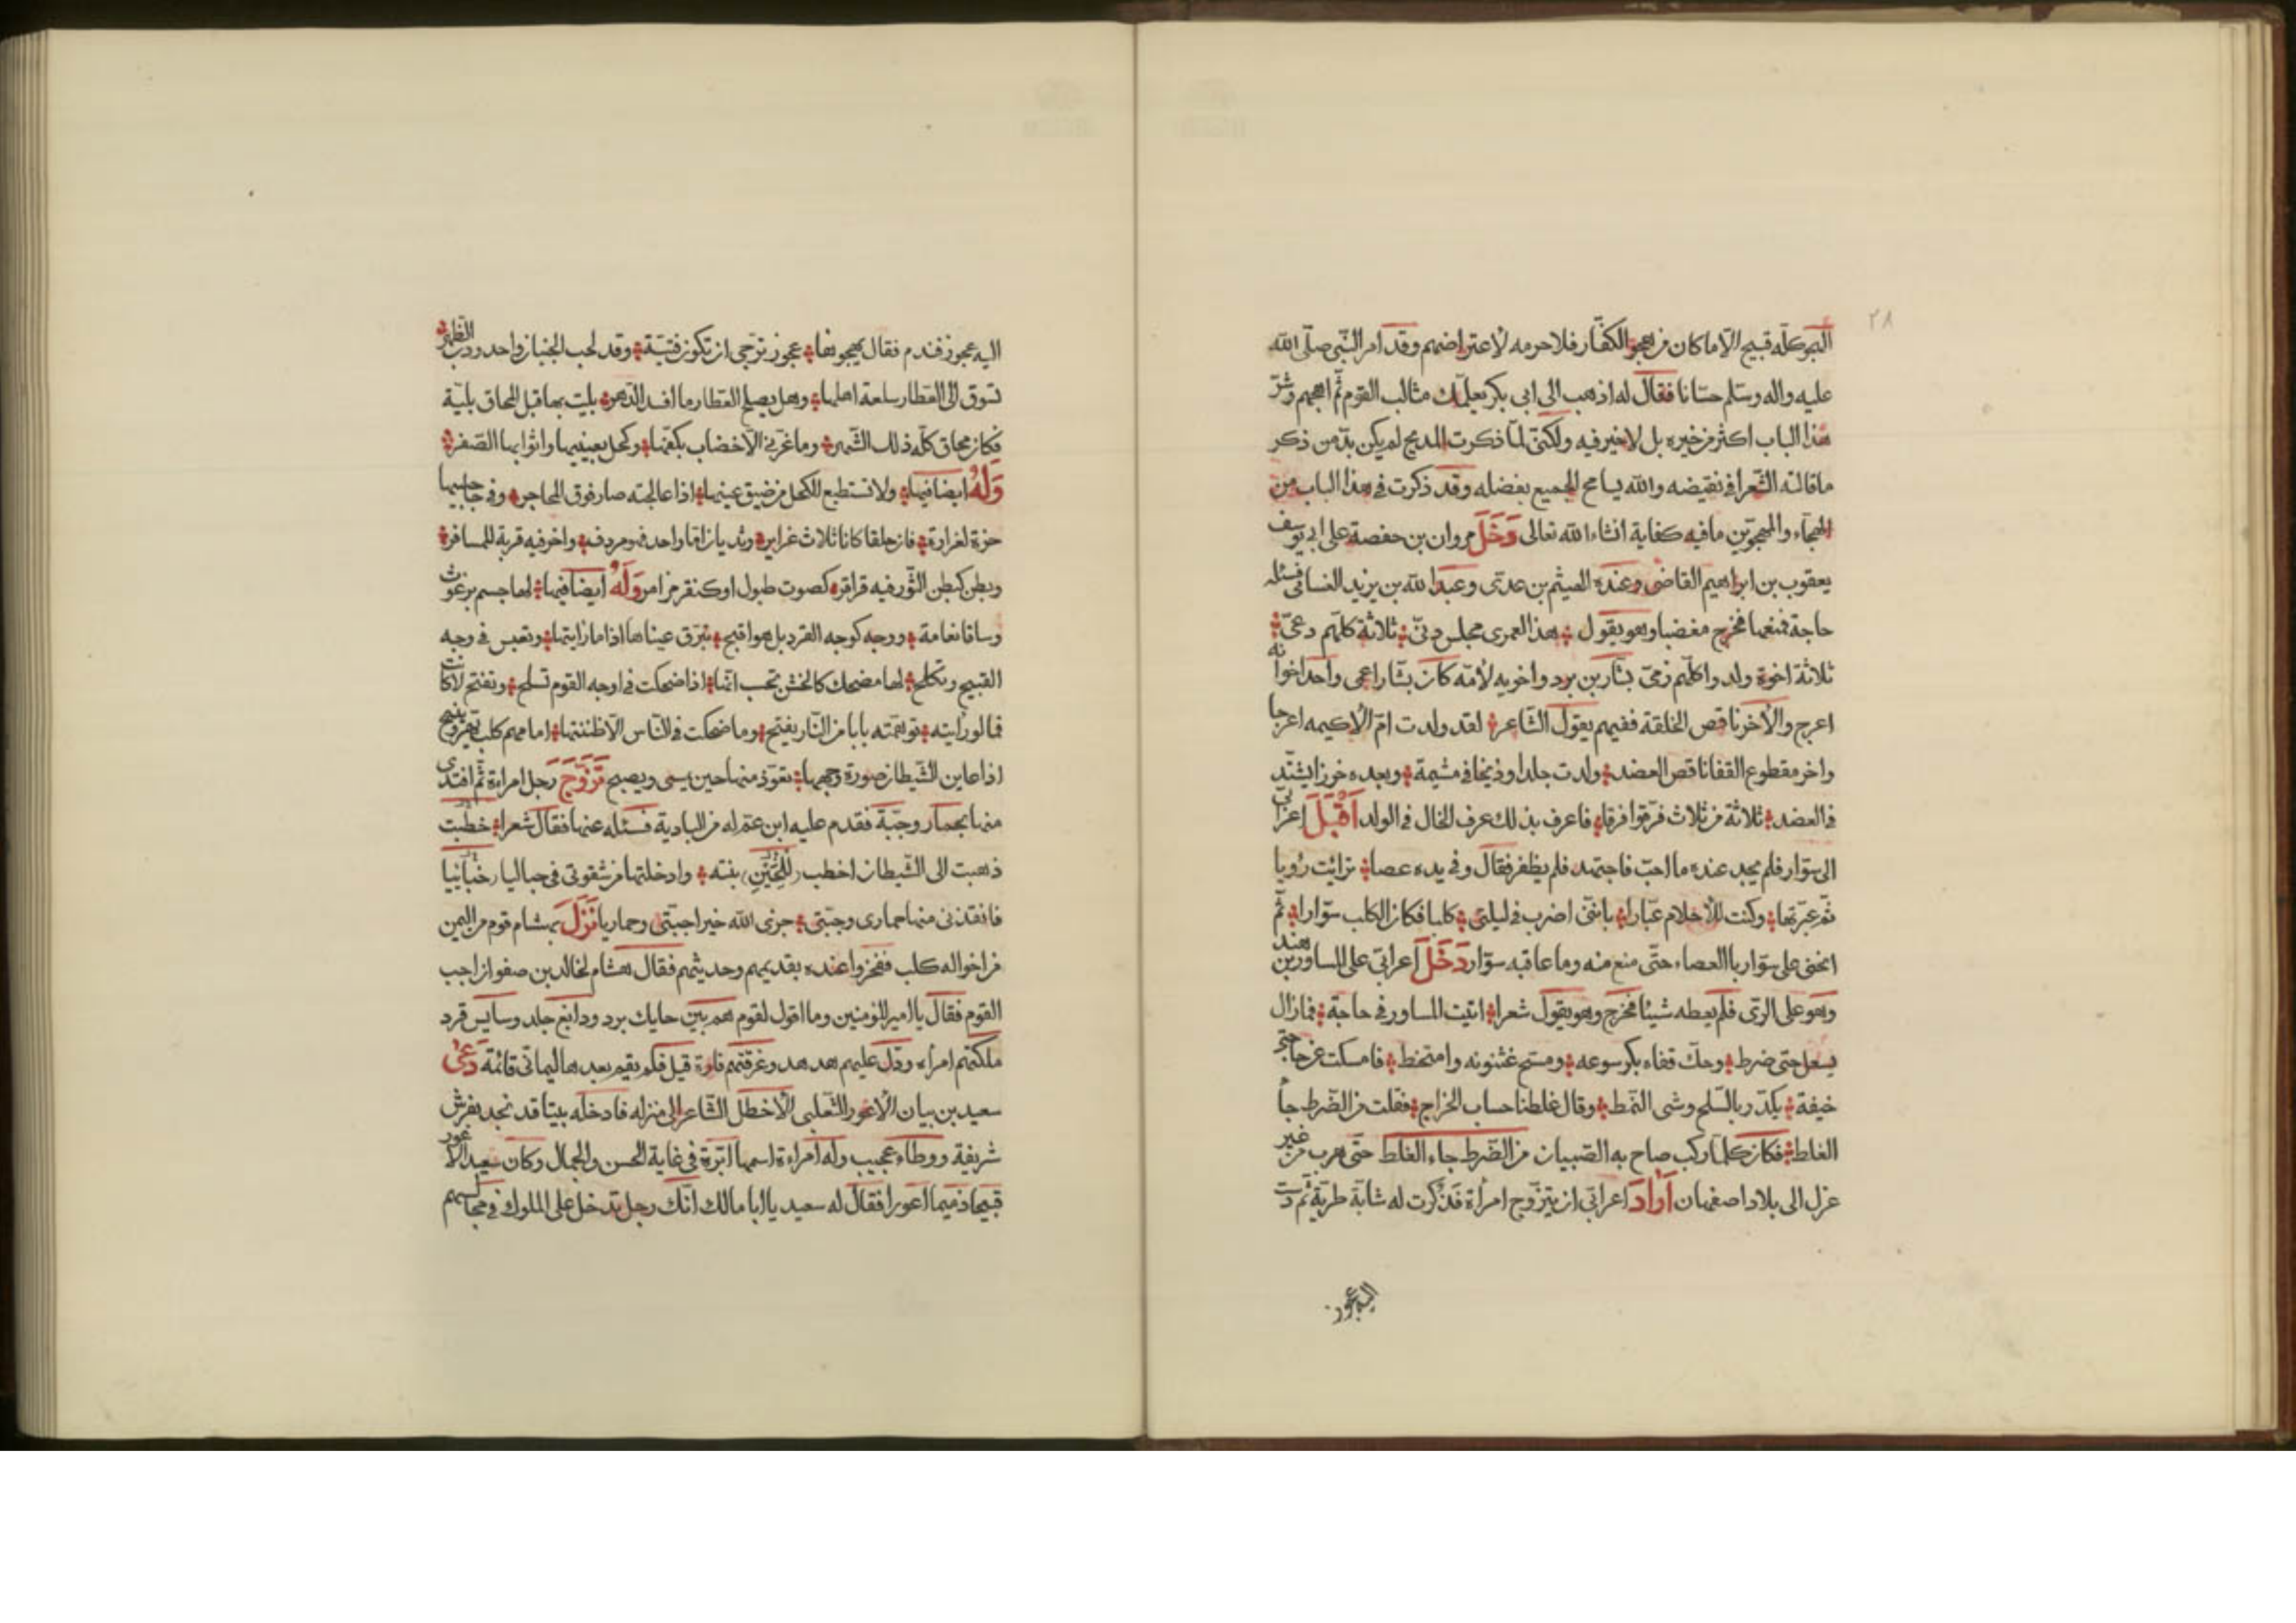 ٢٨
الهجو كلّه قبيح الّا ما كان من هجو الكفّار فلا حرمه لأعتراضهم وقد امر النّبي صلّى الله
عليه واله وسلّم حسّانا فقال له اذهب الى ابى بكر يعلّمك مثالب القوم ثمّ اهجهم وشرّ
هذا الباب اكثر من خيره بل لا خير فيه ولكنّى لمّا ذكرت المديح لم يكن بدّ من ذكر
ما قالته الشّعرا فى نقيضه والله يسامح الجميع بفضله وقد ذكرت فى هذا الباب من
الهجآء والمهجوّين ما فيه كفاية انشاء الله تعالى دَخَلَ مروان بن حفصة على ابى يوسف
يعقوب بن ابراهيم القاضى وعنده الهيثم بن عدىّ وعبد الله بن يزيد الغسانى فسئله
حاجة فمنعها فخرج مغضبا وهو يقول هذا لعمرى مجلس دنىّ ثلاثة كلّهم دعىّ
ثلاثة اخوة ولدوا كلّهم زمىّ بشّار بن برد واخويه لأمّه كان بشّار اعمى واحد اخوانه
اعرج والأخر ناقص الخلقة ففيهم يقول الشّاعر لقد ولدت امّ الأكيمه اعرجا
واخر مقطوع القفا ناقص العضد ولدت جلدا وذيخا فى مشيمة وبعده خوزا يشتدّ
فى العضد ثلاثة من ثلاث فرّقوا فرقا فاعرف بذلك عرف الخال فى الولد اَقْبَلَ اعرابىّ
الى سوّار فلم يجد عنده ما احبّ فاجتهد فلم يظفر فقال وفى يده عصا رائيت رؤيا
ثمّ عبّرتها وكنت للأحلام عبّارا بانّنى اضرب فى ليلتى كلبا فكان الكلب سوّارا ثمّ
انحنى على سوّار باالعصاء حتّى منع منه وما عاقبه سوّار دَخَلَ اعرابى على المساور بن هند
وهو على الرّى فلم يعطه شيئا فخرج وهو يقول شعرا اتيت المساور فى حاجة فمازال
يسعل حتى ضرط وحكّ قفاه بكرسوعه ومسح عثنونه وامتخط فامسكت عن حاجتى
خيفة يكدّر باالسّلح وشى النّمط وقال غلطنا حساب الخراج فقلت من الضّرط جأ
الغلط فكان كلّما ركب صاح به الصّبيان من الضّرط جاء الغلط حتّى هرب من غير
عزل الى بلاد اصفهان اَرادَ اعرابى ان يتزوّج امرأة فذكرت له شابّة طريّة ثمّ دسّت
اليه عجوز
اليه عجوز فندم فقال يهجوها عجوز ترجّى ان تكون فتيّة وقد لحب الجنبان واحدودب الظّهر
تسوق الى العطار سلعة اهلها وهل يصلح العطار ما افسد الدّهر بليت بها قبل المحاق بليّة
فكان محاق كلّه ذلك الشّهر وما غرّنى الّا خضاب بكفّها وكحل بعينيها واثوابها الصّفر
وَلَهُ ايضا فيها ولا تستطيع الكحل من ضيق عينها اذا عالجته صار فوق المحاجر وفى حاجبيها
حزة لغرارة فان حلقا كانا ثلاث غراير وثديان امّا واحد فهو مردف واخر فيه قربة للمسافر
وبطن كبطن الثّور فيه قراقره كصوت طبول او كنقر مزامر وَلَهُ ايضا فيها لها جسم برغوث
وساقا نعامة ووجه كوجه القرد بل هو اقبح تبرّق عيناها اذا ما رايتها وتعبس فى وجه
القبيح وتكلح لها مضحك كالخشّ تحسب انّها اذا ضحكت فى اوجه القوم تسلح وتفتح لا كانت
فما لو رأيته توهّمته بابا من النّار يفتح وما ضحكت فى النّاس الّا ظننتها امامهم كلب يهر وينبح
اذا عاين الشّيطان صورة وجهها تعوّذ منها حين يمسى ويصبح تَزَوَّجَ رَجل امراءة ثمّ افتدى
منها بحمار وجبّة فقدم عليه ابن عمّ له من البادية فسئله عنها فقال شعرا خطبت
ذهبت الى الشّيطان اخطب بنته وادخلتها من شقوتى فى حباليا
فانقذنى منها حمارى وجبّتى جزى الله خيرا جبّتى وحماريا نَزَلَ بهشام قوم من اليمن
من اخواله كلب ففخروا عنده بقديمهم وحديثهم فقال هشام لخالد بن صفوان اجب
القوم فقال يا امير المؤمنين وما اقول لقوم هم بين حايك برد ودابغ جلد وسايس قرد
ملكتهم امرأه ودلّ عليهم هدهد وغرقتهم فارة قيل فلم يقم بعدها ليمانى قائمة دَعىٰ
سعيد بن بيان الاعور التّغلبى الأخطل الشّاعر الى منزله فادخله بيتا قد نجد بفرش
شريفة ووطاء عجيب وله امراءة اسمها ابرّة فى غاية الحسن والجمال وكان سعيد الاعور
قبيحا ذميما اعورا فقال له سعيد يا ابا مالك انّك رجل تدخل على الملوك فى مجالسهم